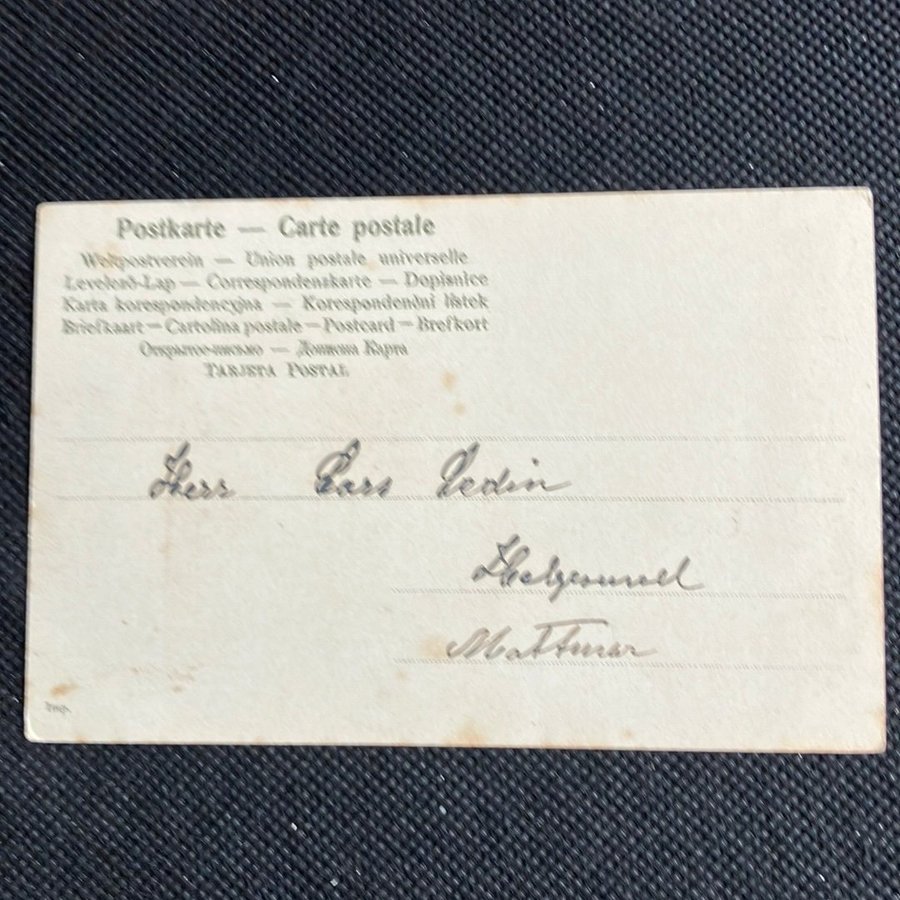 Postkarte — Carte postale
Weltpostverein — Union postale universelle
Levelező-Lap — Correspondenzkarte — Dopisnice
Karta korespondencyjna — Korespondenční lístek
Briefkaart — Cartolina postale — Postcard — Brefkort
Открытое письмо — Дописна Карта
TARJETA POSTAL
Herr Lars Vedin
Mattmar
Imp.